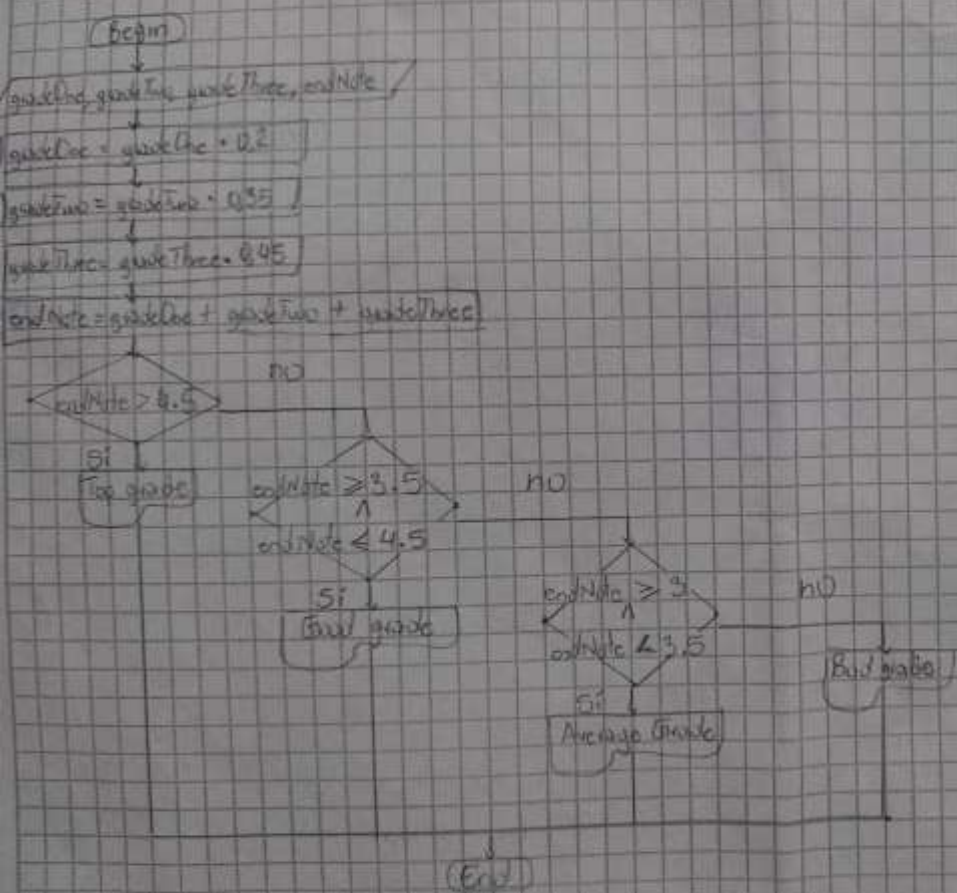 Begin
gradeOne, gradeTwo, gradeThree, endNote
gradeOne = gradeOne * 0,2
gradeTwo = gradeTwo * 0,35
gradeThree = gradeThree * 0,45
endNote = gradeOne + gradeTwo + gradeThree
endNote > 4.5
no
Si
Top grade
endNote ≥ 3.5
∧
endNote ≤ 4.5
no
Si
Good grade
endNote ≥ 3
∧
endNote < 3.5
no
Si
Average Grade
Bad grade
End